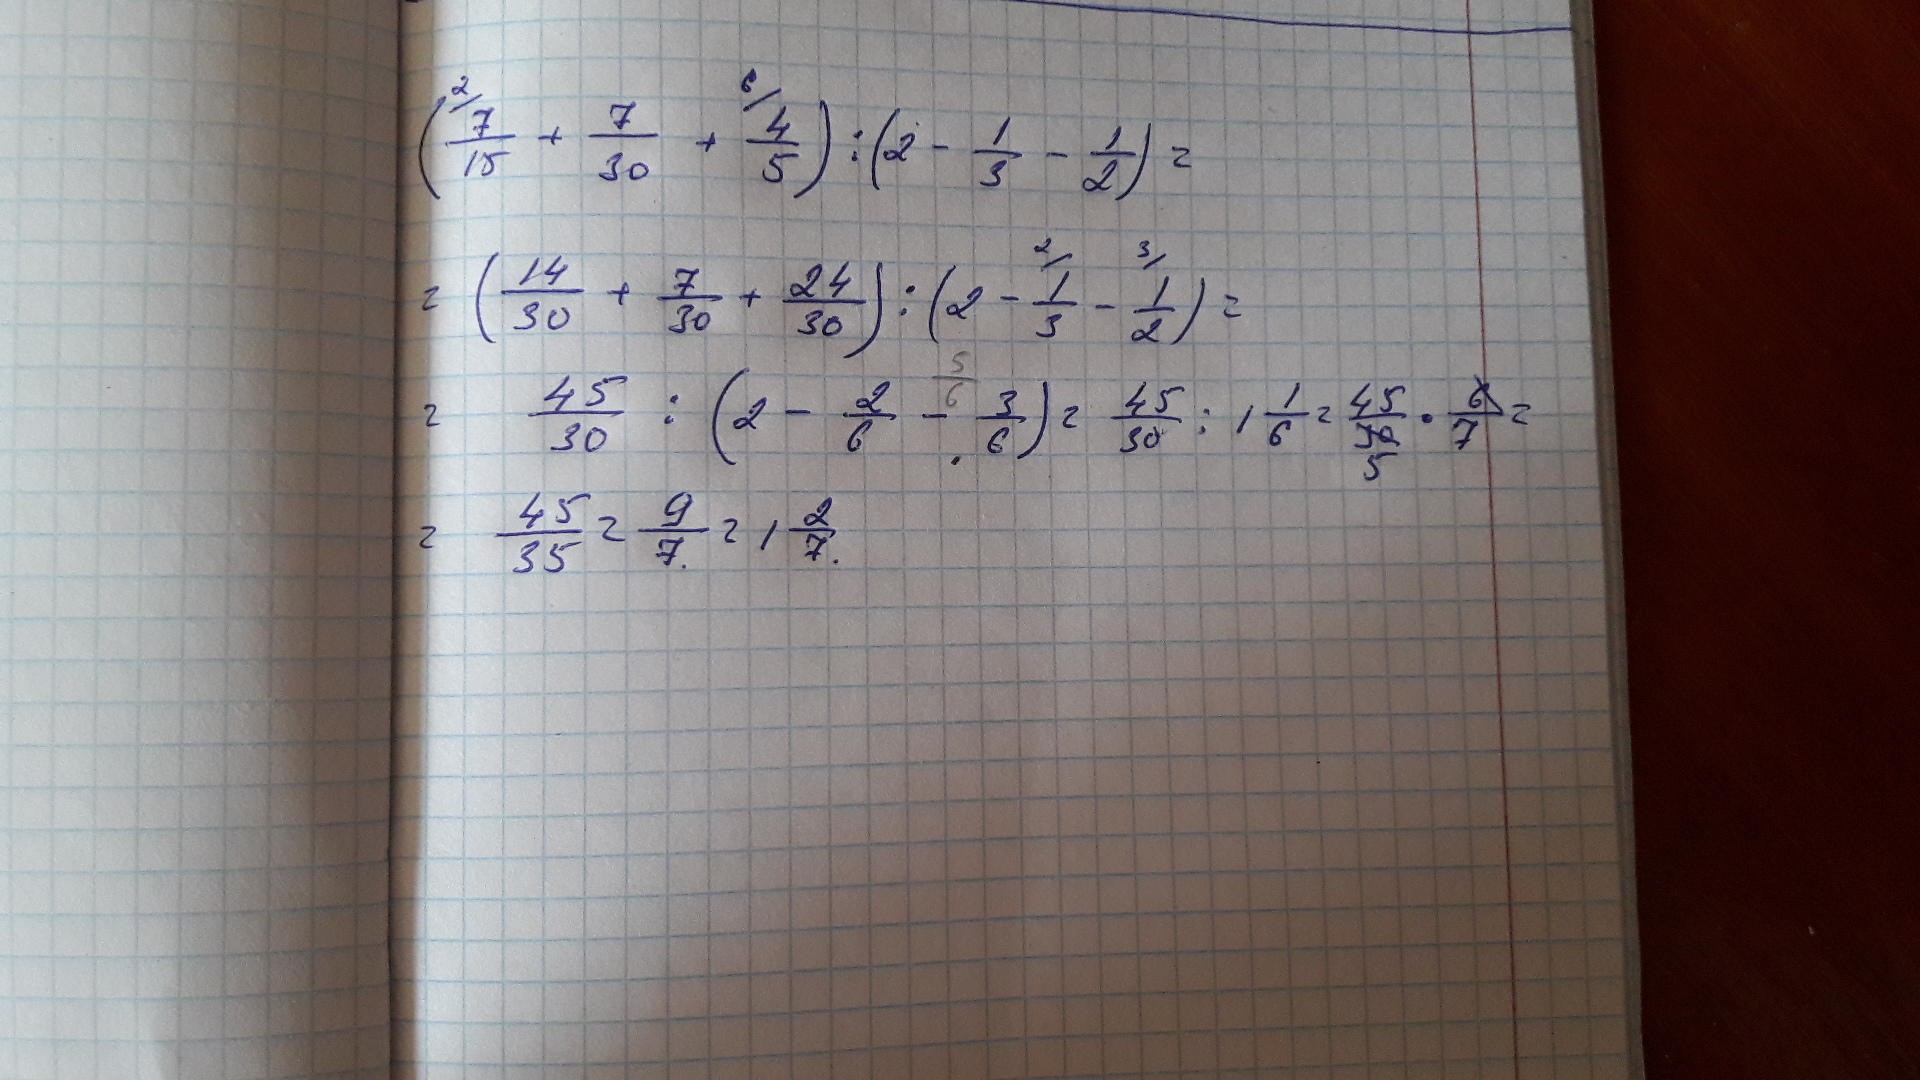 (2/ 7/15 + 7/30 + 6/ 4/5) : (2 - 1/3 - 1/2) =
= (14/30 + 7/30 + 24/30) : (2 - 2/ 1/3 - 3/ 1/2) =
5/6
= 45/30 : (2 - 2/6 - 3/6) = 45/30 : 1 1/6 = 45/30 · 6/7 =
5
= 45/35 = 9/7. = 1 2/7.